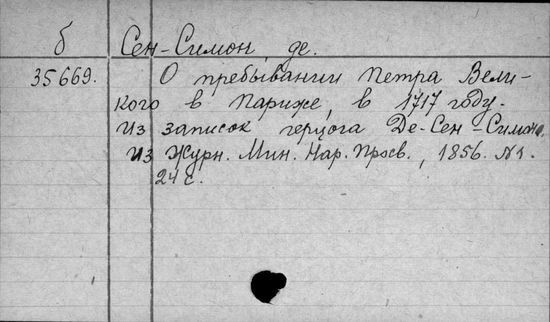 б Сен-Симон, де.
35669. О пребывании Петра Вели-
кого в Париже, в 1717 году.
Из записок герцога Де-Сен-Симона.
Из Журн. Мин. Нар. Просв., 1856. №1.
24 с.